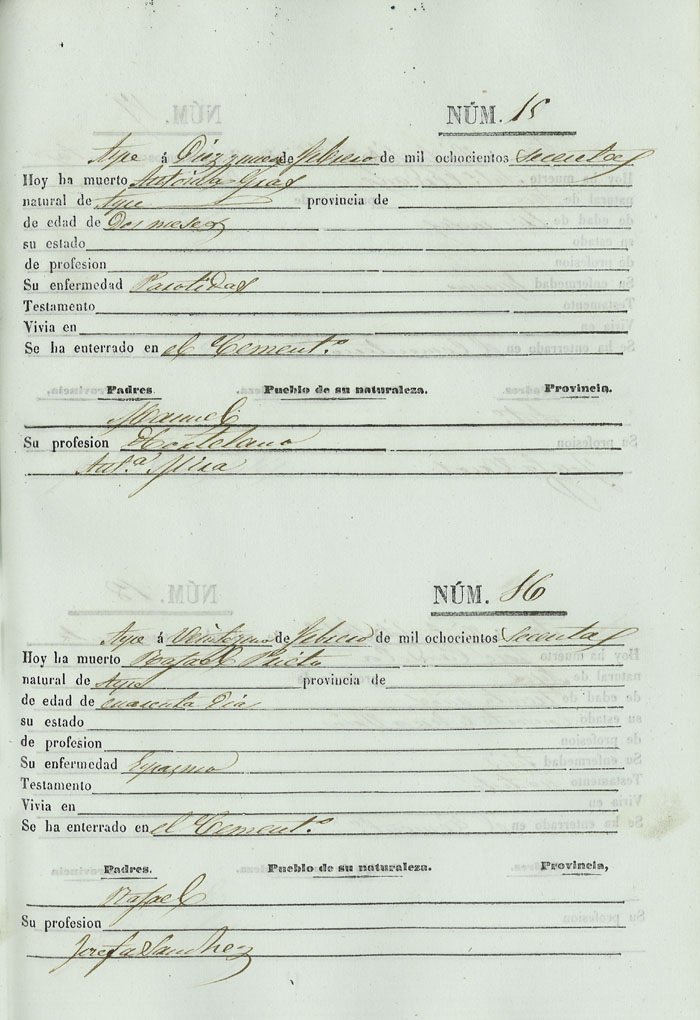 NÚM. 15
Aspe á Diez y nueve de Febrero de mil ochocientos Secenta y
Hoy ha muerto Antonia Gras
natural de Aspe provincia de
de edad de Dos meses
su estado
de profesion
Su enfermedad Parotidas
Testamento
Vivia en
Se ha enterrado en el Cement.º
Padres. Pueblo de su naturaleza. Provincia.
Manuel
Su profesion Hortelano
Ant.ª Mira
NÚM. 16
Aspe á Veintiuno de Febrero de mil ochocientos Secenta y
Hoy ha muerto Rafael Prieto
natural de Aspe provincia de
de edad de cuarenta dias
su estado
de profesion
Su enfermedad Espasmo
Testamento
Vivia en
Se ha enterrado en el Cement.º
Padres. Pueblo de su naturaleza. Provincia,
Rafael
Su profesion
Josefa Sanchez